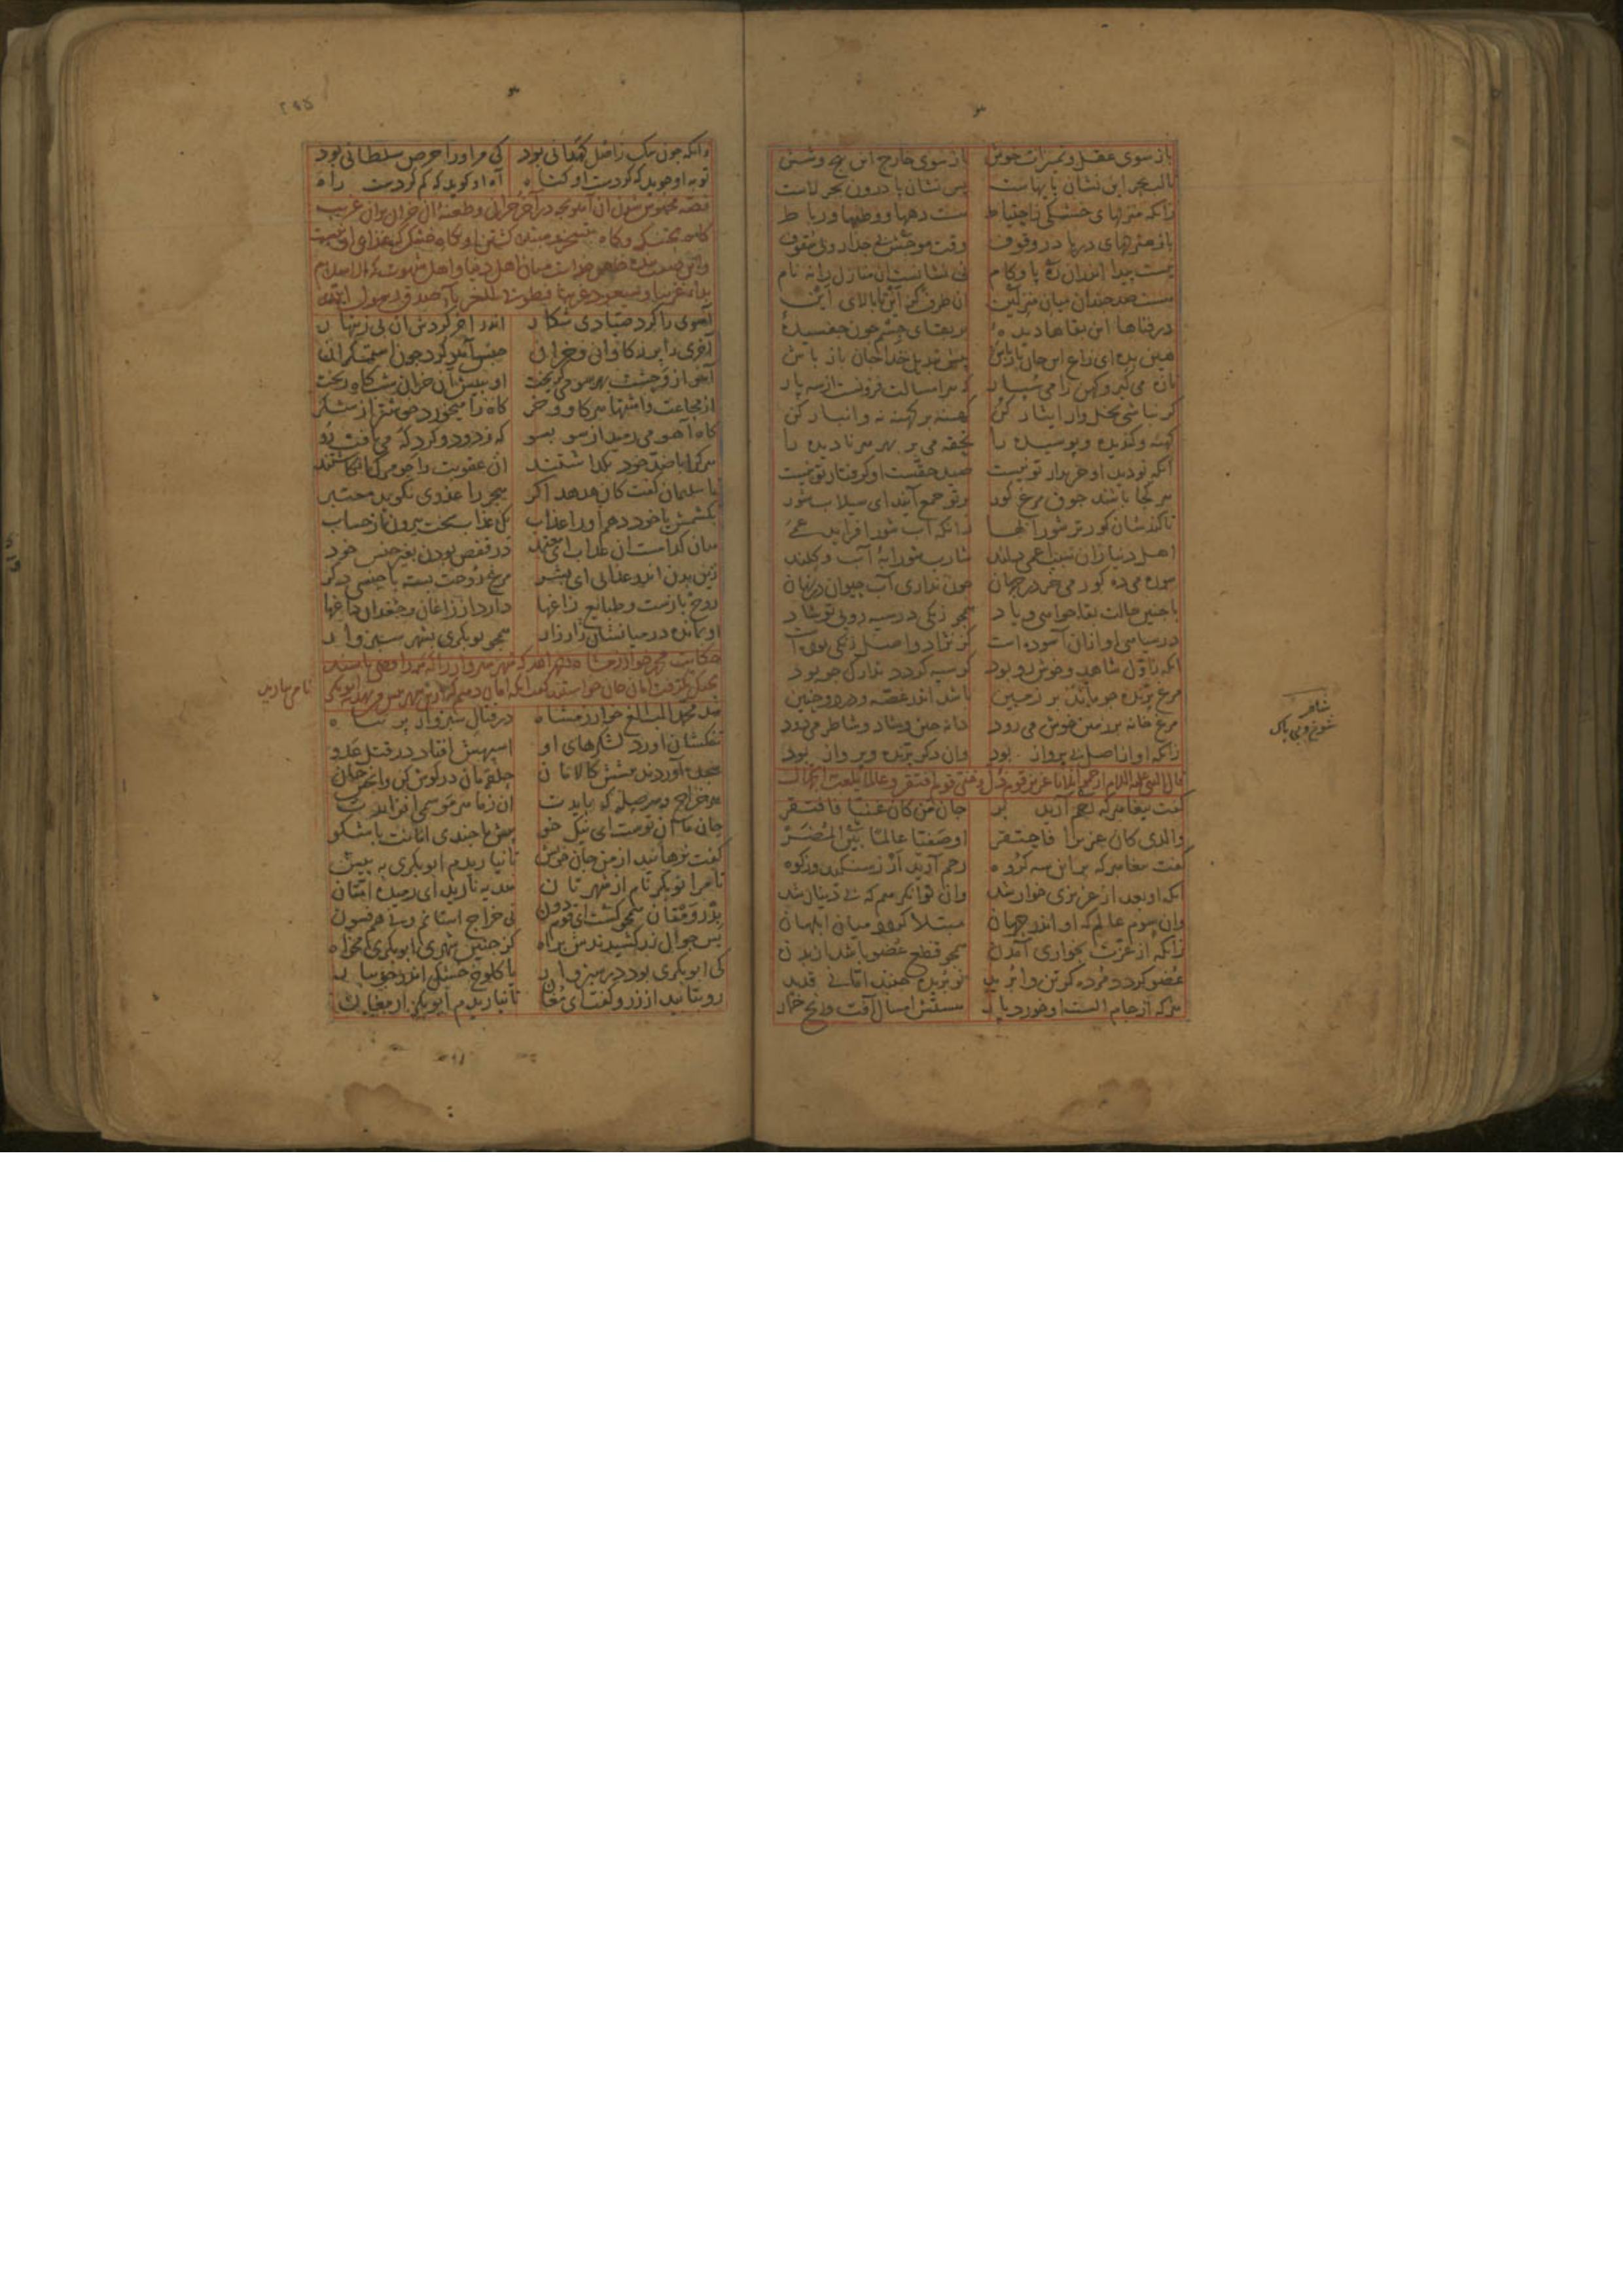 باز سوی عقل و تمیزات خویش باز سوی خارج این پنج و شش
تا لب بحر این نشان پایهاست پس نشان پا درون بحر لاست
زانکه منزلهای خشکی ز احتیاط هست دهها و وطنها و رباط
باز منزلهای دریا در وقوف وقت موجش بی جدار و بی سقوف
نیست پیدا اندران ره پا و کام نی نشانیست آن منازل را نه نام
هست صد چندان میان منزلین آن طرف کز این تا بالای این
در فناها این بقاها دیده ٔ بر بقای جسم چون چفسیده ٔ
هین بده ای زاغ این جان باز باش پیش تبدیل خدا جان باز باش
تازه می کیر و کهن را می سپار که هر امسالت فزونست از سه پار
کر نباشی نخل وار ایثار کن کهنه بر کهنه نه و انبار کن
کهنه و کندیده و پوسیده را تحفه می بر بهر هر نادیده را
آنکه نو دید او خریدار تو نیست صید حقست او کرفتار تو نیست
هر کجا باشند جوق مرغ کور بر تو جمع آیند ای سیلاب شور
تا فزاید کورتر شورابها زانکه آب شور افزاید عمی
اهل دنیا زان سبب اعمی دلند شارب شورابه ٔ آب و کلند
شور می ده کور می خر در جهان چون نداری آب حیوان در نهان
با چنین حالت بقا خواهی و یاد همچو زنکی در سیه رویی تو شاد
در سیاهی او از آن آسوده است کز نژاد و اصل زنکی بوده است
آنکه ز اول شاهد و خوش رو بود کر سیه کردد تدارک جو بود
مرغ پرنده چو ماند بر زمین باشد اندر غصه و درد و حنین
مرغ خانه بر زمین خوش می رود دانه چین و شاد و شاطر می دود
زانکه او از اصل بی پرواز بود وان دکر پرنده و پرواز بود
قال النبی علیه السلام ارحموا ثلاثا عزیز قوم ذل و غنی قوم افتقر و عالما یلعب به الجهال
کفت پیغامبر که رحم آرید بر جان من کان غنیا فافتقر
والذی کان عزیزا فاحتقر او صفیا عالما بین المضر
کفت پیغامبر که بر این سه کروه رحم آرید ار ز سنکید و ز کوه
آنکه او بعد از عزیزی خوار شد وان توانکر هم که بی دینار شد
وان سوم عالم که او اندر جهان مبتلا کردد میان ابلهان
زانکه از عزت بخواری آمدن همچو قطع عضو باشد از بدن
عضو کردد مرده کز تن وابرید نو بریده جنبد اما نی قدید
هر که از جام الست او خورد پار هستش امسال آفت رنج خمار
شاطر
شوخ و بی باک
۲۹۵
وانکه چون سک ز اصل کهدانی بود کی مر او را حرص سلطانی بود
توبه او جوید که کردست او کناه آه او کوید که کم کردست راه
آهوی را کرد صیادی شکار اندر آخر کردش آن بی زینهار
آخری را پر ز کاوان و خران حبس آهو کرد چون استمکران
آهو از وحشت بهر سو می کریخت او بپیش آن خران شب کاه ریخت
از مجاعت و اشتها هر کاو و خر کاه را میخورد خوشتر از شکر
کاه آهو می رمید از سو بسو که ز دود و کرد که می تافت رو
هر کرا با ضد خود بکذاشتند آن عقوبت را چو مرک انکاشتند
تا سلیمان کفت کان هدهد اکر هجر را عذری نکوید معتبر
بکشمش یا خود دهم او را عذاب یک عذاب سخت بیرون از حساب
هان کدامست آن عذاب ای معتمد در قفص بودن بغیر جنس خود
زین بدن اندر عذابی ای بشر مرغ روحت بسته با جنسی دکر
روح بازست و طبایع زاغها دارد از زاغان و جغدان داغها
او بمانده در میانشان زار زار همچو بوبکری بشهر سبزوار
شد محمد الب الغ خوارزمشاه در قتال سبزوار پر تباه
تنکشان آورد لشکرهای او اسپهش افتاد در قتل عدو
سجده آوردند پیشش کالامان حلقه مان در کوش کن وا بخش جان
هر خراج و هر صله که بایدت آن ز ما هر موسمی افزایدت
جان ما آن توست ای نیک خو پیش ما چندی امانت باش کو
کفت نرهانید از من جان خویش تا نیاریدم ابوبکری به پیش
تا مرا بوبکر نام از شهرتان هدیه نارید ای رمیده امتان
بدروم تان همچو کشت ای قوم دون نی خراج استانم و نی هم فسون
بس جوال زر کشیدندش براه کز چنین شهری ابوبکری مخواه
کی ابوبکری بود در سبزوار یا کلوخ خشک اندر جویبار
رو بتابید از زر و کفت ای مغان تا نیاریدم ابوبکر ارمغان